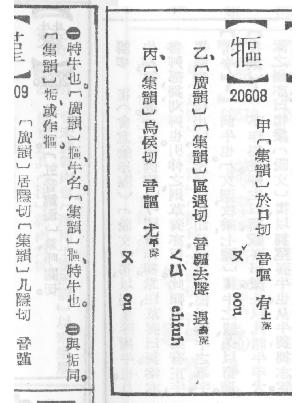 【㸸】
20608
甲〔集韻〕於口切 音嘔 有上聲
ㄡˇ oou
乙、〔廣韻〕〔集韻〕區遇切 音謳去聲 遇去聲
ㄑㄩˋ chiuh
丙、〔集韻〕烏侯切 音謳 尤平聲
ㄡ ou
㊀特牛也。〔廣韻〕㸸，牛名。〔集韻〕㸸，特牛也。㊁與㸯同。
〔集韻〕㸯，或作㸸。
09
〔廣韻〕居隱切〔集韻〕几隱切 音謹